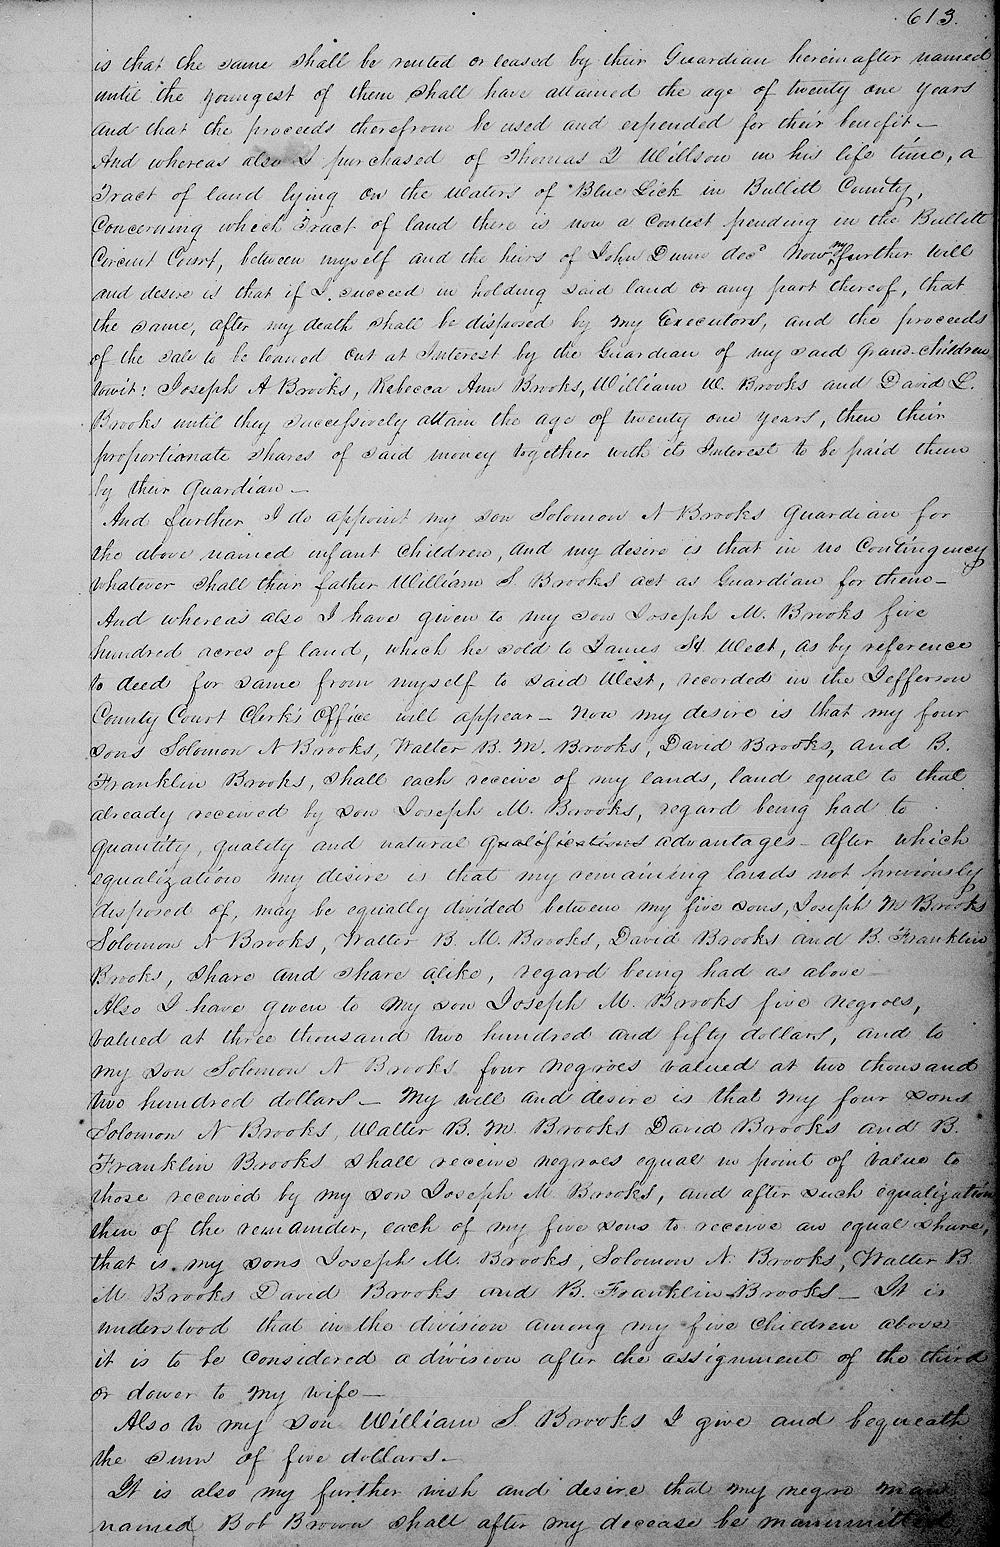 613.
is that the same shall be rented or leased by their Guardian hereinafter named
until the youngest of them shall have attained the age of twenty one years
and that the proceeds therefrom be used and expended for their benefit —
And whereas also I purchased of Thomas Q Willson in his life time, a
Tract of land lying on the waters of Blue Lick in Bullitt County,
Concerning which Tract of land there is now a contest pending in the Bullitt
Circuit Court, between myself and the heirs of John Dunn decd Now my further will
and desire is that if I succeed in holding said land or any part thereof, that
the same, after my death shall be disposed by my Executors, and the proceeds
of the sale to be loaned out at Interest by the Guardian of my said Grand-children
towit: Joseph A Brooks, Rebecca Ann Brooks, William W. Brooks and David L.
Brooks until they successively attain the age of twenty one years, then their
proportionate shares of said money together with its Interest to be paid them
by their Guardian —
And further I do appoint my son Solomon N Brooks Guardian for
the above named infant children, and my desire is that in no Contingency
whatever shall their father William S. Brooks act as Guardian for them —
And whereas also I have given to my son Joseph M. Brooks five
hundred acres of land, which he sold to James H. West, as by reference
to deed for same from myself to said West, recorded in the Jefferson
County Court Clerk's Office will appear — Now my desire is that my four
sons Solomon N Brooks, Walter B. M. Brooks, David Brooks, and B.
Franklin Brooks, shall each receive of my lands, land equal to that
already received by son Joseph M. Brooks, regard being had to
quantity, quality and natural qualifications advantages — After which
equalization my desire is that my remaining lands not previously
disposed of, may be equally divided between my five sons, Joseph M Brooks
Solomon N Brooks, Walter B. M. Brooks, David Brooks and B. Franklin
Brooks, share and share alike, regard being had as above —
Also I have given to my son Joseph M. Brooks five negroes,
valued at three thousand two hundred and fifty dollars, and to
my son Solomon N Brooks four negroes valued at two thousand
two hundred dollars — My will and desire is that my four sons
Solomon N Brooks, Walter B. M. Brooks David Brooks and B.
Franklin Brooks shall receive negroes equal in point of value to
those received by my son Joseph M. Brooks, and after such equalization
then of the remainder, each of my five sons to receive an equal share,
that is my sons Joseph M. Brooks, Solomon N. Brooks, Walter B
M Brooks David Brooks and B. Franklin Brooks — It is
understood that in the division among my five children above
it is to be considered a division after the assignment of the third
or dower to my wife —
Also to my son William S. Brooks I give and bequeath
the sum of five dollars —
It is also my further wish and desire that my negro man
named Bob Brown shall after my decease be manumitted,